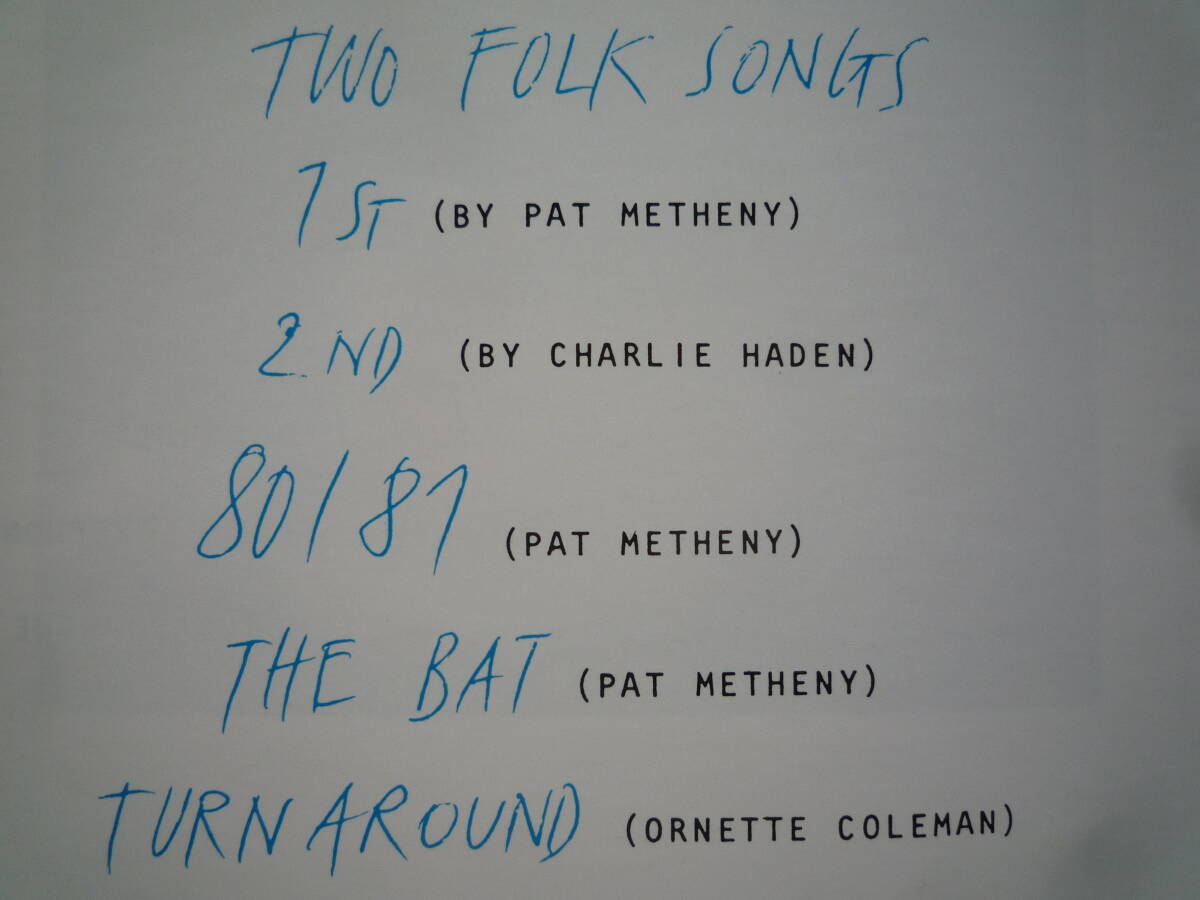 TWO FOLK SONGS
1ST (BY PAT METHENY)
2ND (BY CHARLIE HADEN)
80/81 (PAT METHENY)
THE BAT (PAT METHENY)
TURNAROUND (ORNETTE COLEMAN)